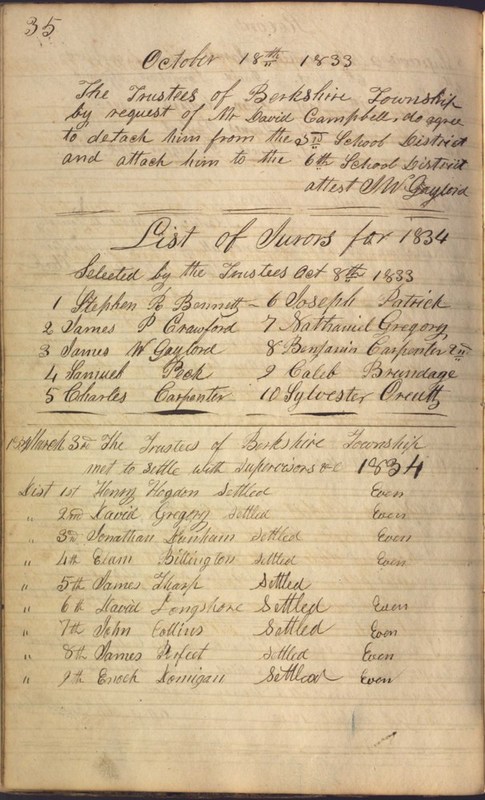 35
October 18th 1833
The Trustees of Berkshire Township
by request of Mr David Campbell, do agree
to detach him from the School District
and attach him to the 6th School District
attest J W Gaylord
List of Jurors for 1834
Selected by the Trustees Oct 8th 1833
1 Stephen R Bennett - 6 Joseph Patrick
2 James P Crawford 7 Nathaniel Gregory
3 James W Gaylord 8 Benjamin Carpenter 2nd
4 Samuel Peck 9 Caleb Brundage
5 Charles Carpenter 10 Sylvester Orcutt
March 3rd The Trustees of Berkshire Township
met to settle with Supervisors &c 1834
Dist 1st Henry Hogdon Settled Even
" 2nd David Gregory Settled Even
" 3rd Jonathan Dunham Settled Even
" 4th Elam Billington Settled Even
" 5th James Tharp Settled
" 6th David Longshore Settled Even
" 7th John Collins Settled Even
" 8th James Perfect Settled Even
" 9th Enoch Domigan Settled Even